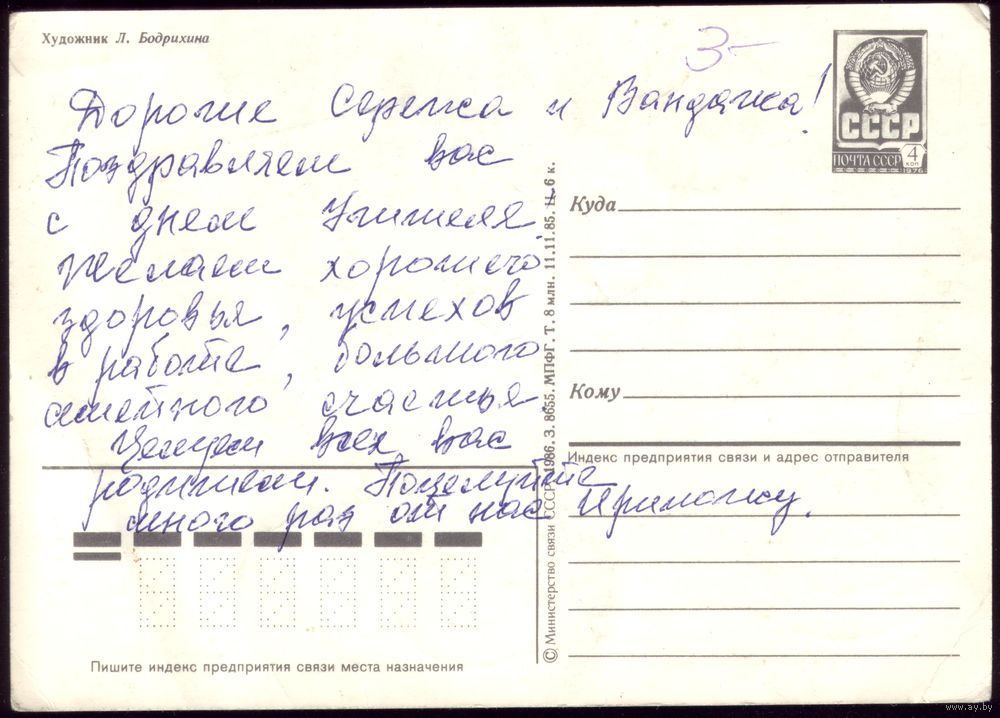 Художник Л. Бодрихина
3-
Дорогие Сережа и Вандачка!
Поздравляем вас
с днем Учителя.
Желаем хорошего
здоровья, успехов
в работе, большого
семейного счастья.
Целуем всех вас
родители. Поцелуйте
много раз от нас Иришку.
СССР
ПОЧТА СССР 4 КОП
1976
Куда
Кому
Индекс предприятия связи и адрес отправителя
© Министерство связи СССР. 1986. З. 8655. МПФГ. Т. 8 млн. 11.11.85. Ц. 6 к.
Пишите индекс предприятия связи места назначения
www.ay.by